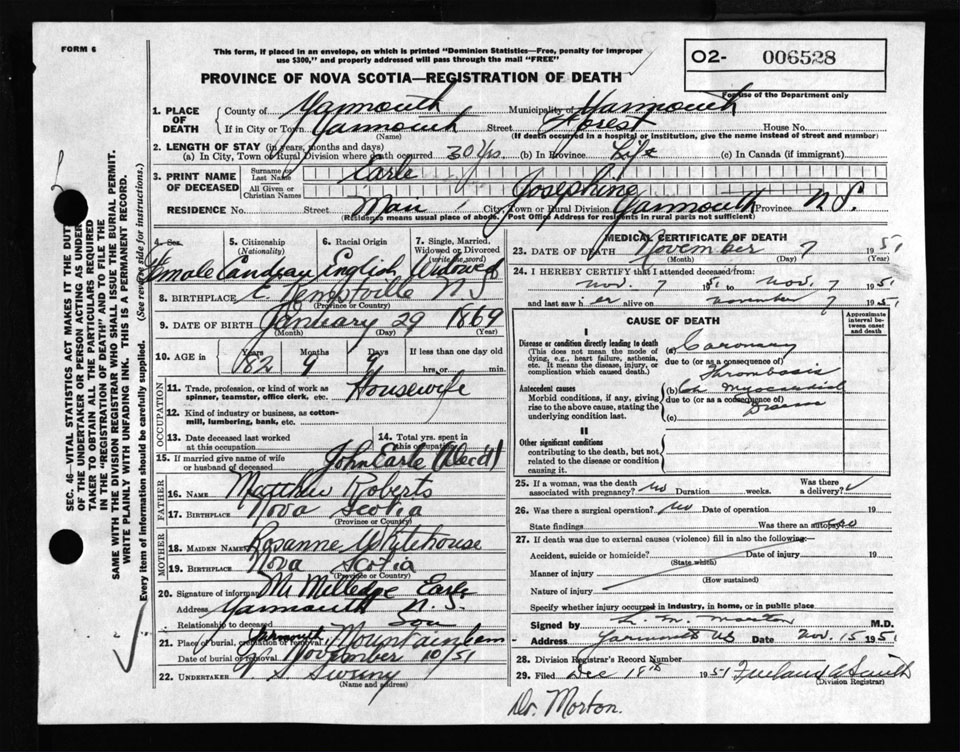 FORM 6
This form, if placed in an envelope, on which is printed "Dominion Statistics—Free, penalty for improper
use $300," and properly addressed will pass through the mail "FREE"
O2- 006528
For use of the Department only
PROVINCE OF NOVA SCOTIA—REGISTRATION OF DEATH
SEC. 46—VITAL STATISTICS ACT MAKES IT THE DUTY
OF THE UNDERTAKER OR PERSON ACTING AS UNDER
TAKER TO OBTAIN ALL THE PARTICULARS REQUIRED
IN THE "REGISTRATION OF DEATH" AND TO FILE THE
SAME WITH THE DIVISION REGISTRAR WHO SHALL ISSUE THE BURIAL PERMIT.
WRITE PLAINLY WITH UNFADING INK. THIS IS A PERMANENT RECORD.
Every item of information should be carefully supplied. (See reverse side for instructions.)
1. PLACE OF DEATH County of Yarmouth Municipality of Yarmouth
If in City or Town Yarmouth Street Forest House No.
(Name) (If death occurred in a hospital or institution, give the name instead of street and number)
2. LENGTH OF STAY (in years, months and days)
(a) In City, Town or Rural Division where death occurred 30 Yrs. (b) In Province Life (c) In Canada (if immigrant)
3. PRINT NAME OF DECEASED Surname or Last Name Earle
All Given or Christian Names Josephine
RESIDENCE No. Street Main City, Town or Rural Division Yarmouth Province N.S.
(Residence means usual place of abode. Post Office Address for residents in rural parts not sufficient)
4. Sex 5. Citizenship (Nationality) 6. Racial Origin 7. Single, Married, Widowed or Divorced (write the word)
Female Canadian English Widowed
8. BIRTHPLACE E. Kemptville N S
(Province or Country)
9. DATE OF BIRTH January 29 1869
(Month) (Day) (Year)
10. AGE in Years Months Days If less than one day old
82 9 9 hrs. or min.
OCCUPATION
11. Trade, profession, or kind of work as spinner, teamster, office clerk, etc. Housewife
12. Kind of industry or business, as cotton-mill, lumbering, bank, etc.
13. Date deceased last worked at this occupation 14. Total yrs. spent in this occupation
15. If married give name of wife or husband of deceased John Earle (Dec'd)
FATHER
16. NAME Matthew Roberts
17. BIRTHPLACE Nova Scotia
(Province or Country)
MOTHER
18. MAIDEN NAME Rosanne Whytehouse
19. BIRTHPLACE Nova Scotia
(Province or Country)
20. Signature of informant Mr Milledge Earle
Address Yarmouth N.S.
Relationship to deceased Son
21. Place of burial, cremation or removal Yarmouth, Mountain Cem
Date of burial or removal November 10/51
22. UNDERTAKER S. Sweeny
(Name and address)
MEDICAL CERTIFICATE OF DEATH
23. DATE OF DEATH November 7 1951
(Month) (Day) (Year)
24. I HEREBY CERTIFY that I attended deceased from:
Nov. 7 1951 to Nov. 7 1951
and last saw her alive on november 7 1951
CAUSE OF DEATH
Approximate interval between onset and death
I
Disease or condition directly leading to death (a) Coronary
(This does not mean the mode of dying, e.g., heart failure, asthenia, etc. It means the disease, injury, or complication which caused death.)
due to (or as a consequence of)
Thrombosis
Antecedent causes (b) Ch Myocardial
Morbid conditions, if any, giving rise to the above cause, stating the underlying condition last.
due to (or as a consequence of)
Disease
(c)
II
Other significant conditions
contributing to the death, but not related to the disease or condition causing it.
25. If a woman, was the death associated with pregnancy? no Duration weeks. Was there a delivery?
26. Was there a surgical operation? no Date of operation 19
State findings Was there an autopsy no
27. If death was due to external causes (violence) fill in also the following:—
Accident, suicide or homicide? Date of injury 19
(State which)
Manner of injury
(How sustained)
Nature of injury
Specify whether injury occurred in industry, in home, or in public place
Signed by L. M. Morton M.D.
Address Yarmouth NS Date Nov. 15 1951
28. Division Registrar's Record Number
29. Filed Dec 18th 1951 Smith
(Division Registrar)
Dr. Morton.